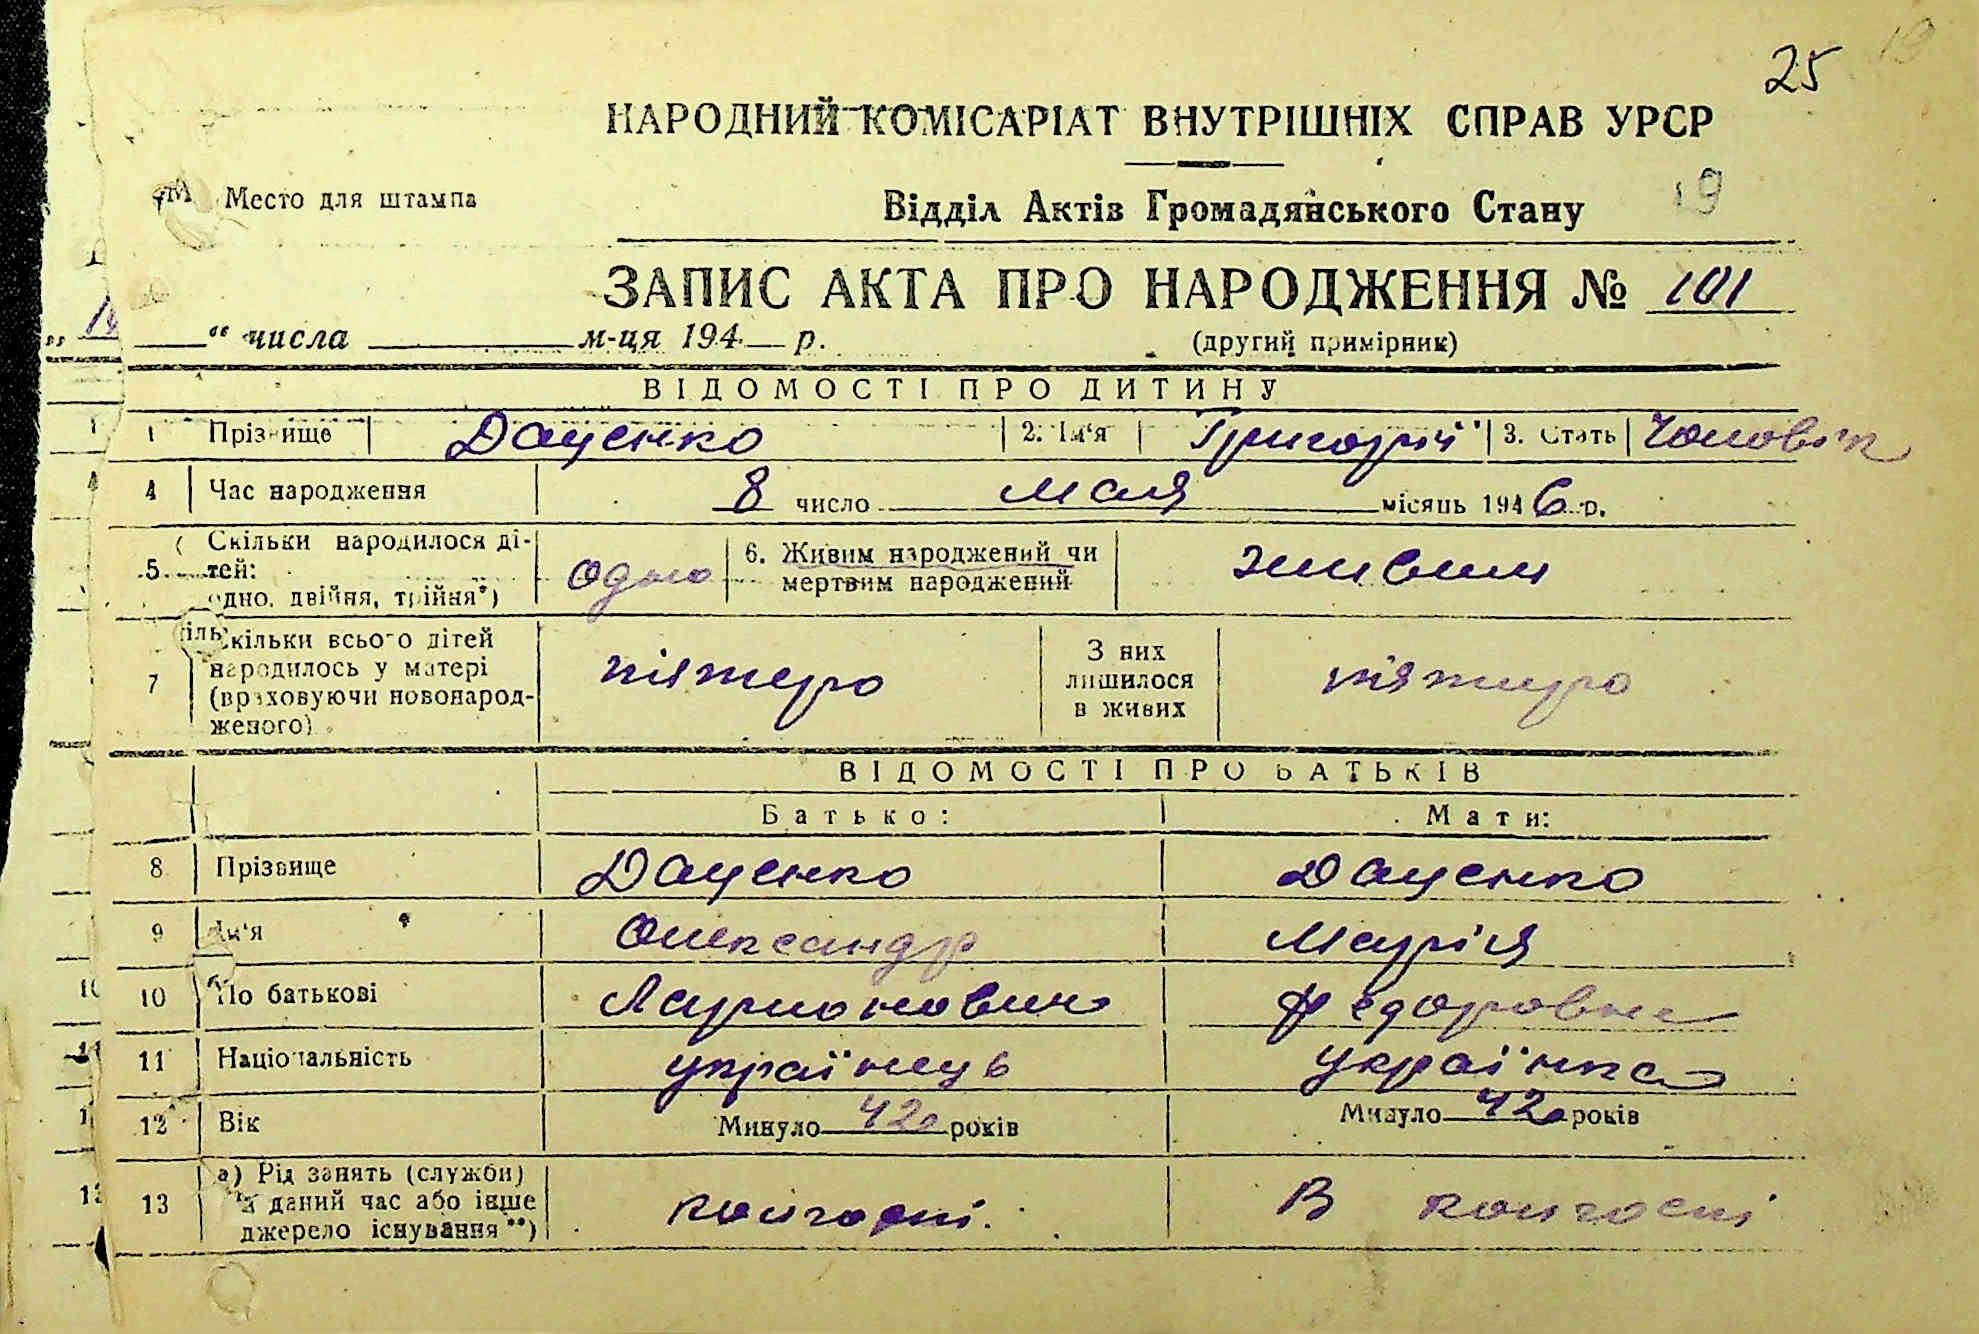 25
19
НАРОДНИЙ КОМІСАРІАТ ВНУТРІШНІХ СПРАВ УРСР
Место для штампа
Відділ Актів Громадянського Стану
19
ЗАПИС АКТА ПРО НАРОДЖЕННЯ № 101
“ числа м-ця 194 р.
(другий примірник)
ВІДОМОСТІ ПРО ДИТИНУ
1 Прізвище Даценко 2. Ім‘я Григорій 3. Стать Чоловік
4 Час народження 8 число мая місяць 1946 р.
5. Скільки народилося ді-
тей:
одно, двійня, трійня*)
одно
6. Живим народжений чи
мертвим народжений
живим
7 Скільки всього дітей
народилось у матері
(враховуючи новонарод-
женого)
пятеро
З них
лишилося
в живих
пятеро
ВІДОМОСТІ ПРО БАТЬКІВ
Батько: Мати:
8 Прізвище Даценко Даценко
9 Ім‘я Олександр Марія
10 По батькові Ларионович Федоровна
11 Національність українець українка
12 Вік Минуло 42 років Минуло 42 років
13 а) Рід занять (служби)
в даний час або інше
джерело існування**)
колгоспі. В колгоспі